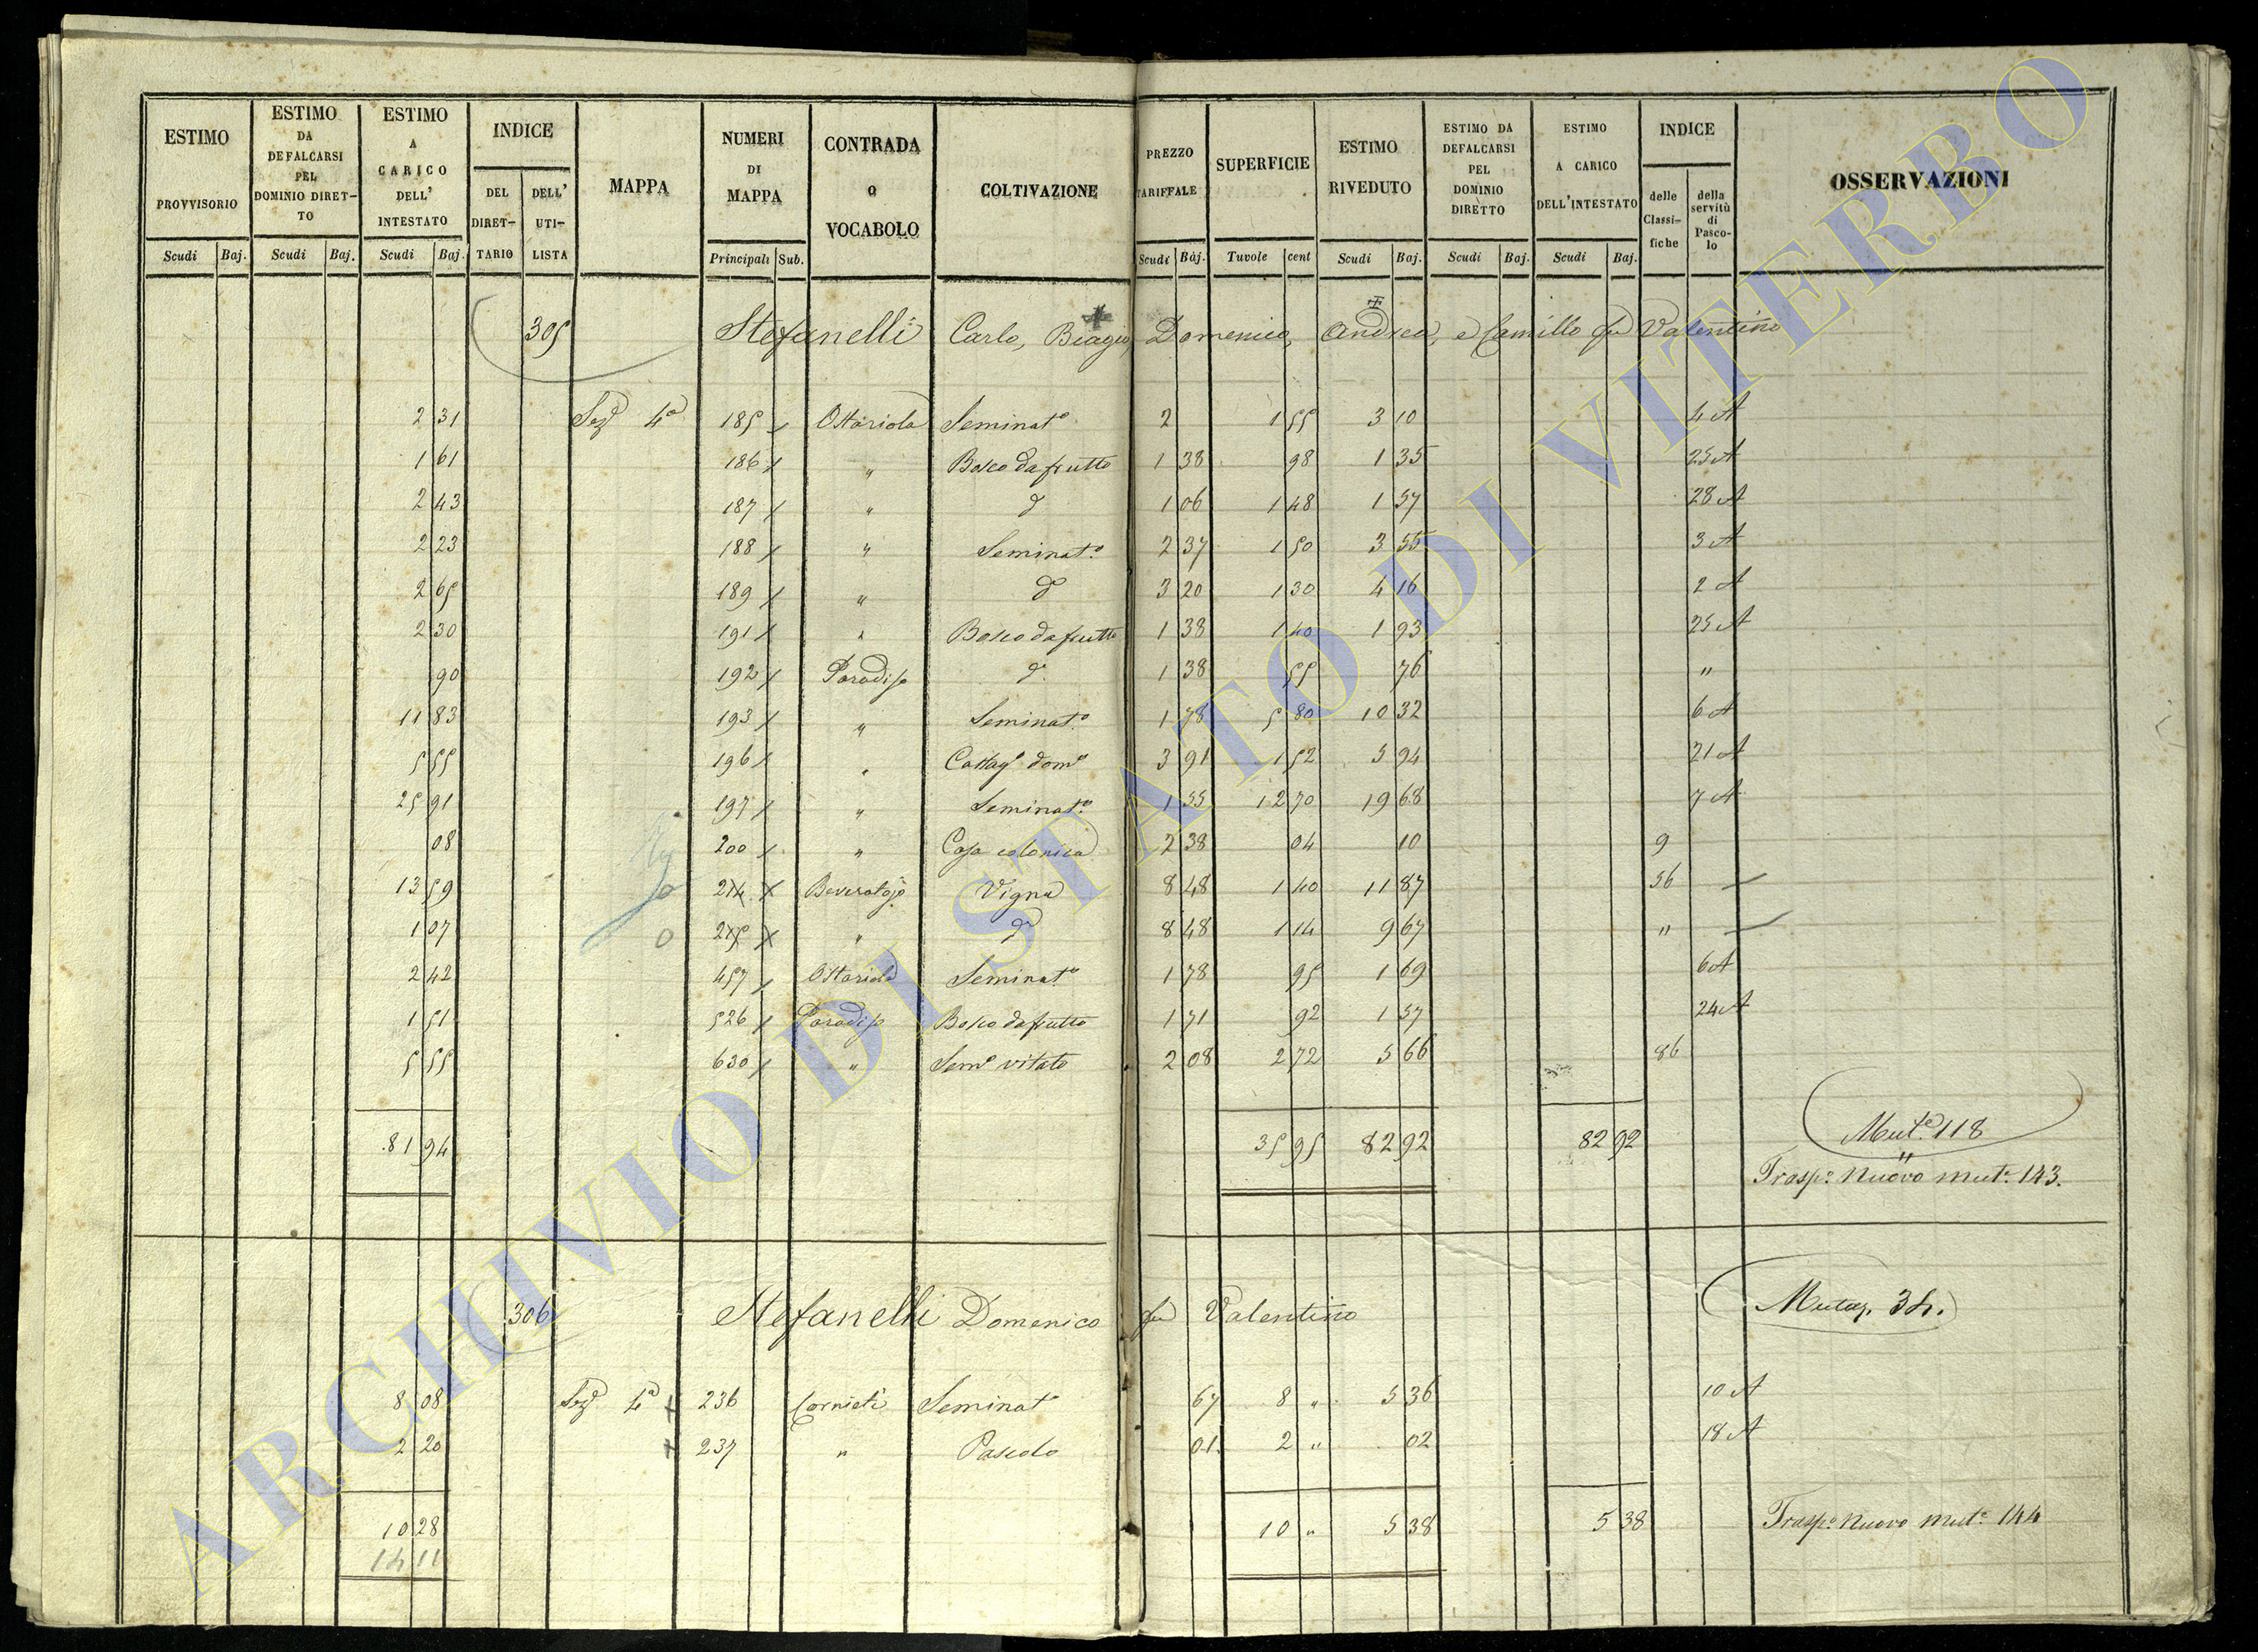 ESTIMO PROVVISORIO Scudi Baj.
ESTIMO DA DEFALCARSI PEL DOMINIO DIRET-TO Scudi Baj.
ESTIMO A CARICO DELL' INTESTATO Scudi Baj.
INDICE DEL DIRET-TARIO DELL' UTI-LISTA
MAPPA
NUMERI DI MAPPA Principali Sub.
CONTRADA o VOCABOLO
COLTIVAZIONE
PREZZO TARIFFALE Scudi Baj.
SUPERFICIE Tuvole cent
ESTIMO RIVEDUTO Scudi Baj.
ESTIMO DA DEFALCARSI PEL DOMINIO DIRETTO Scudi Baj.
ESTIMO A CARICO DELL'INTESTATO Scudi Baj.
INDICE delle Classi-fiche della servitù di Pasco-lo
OSSERVAZIONI
305 Stefanelli Carlo, Biagio, Domenico, Andrea, e Camillo fu Valentino
2 31 Sezª 4ª 185 Ottariola Seminatº 2 1 55 3 10 4 A
1 61 186 " Bosco da frutto 1 38 98 1 35 25 A
2 43 187 " dº 1 06 1 48 1 57 28 A
2 23 188 " Seminatº 2 37 1 50 3 55 3 A
2 65 189 " dº 3 20 1 30 4 16 2 A
2 30 191 " Bosco da frutto 1 38 1 40 1 93 25 A
90 192 Paradiso dº 1 38 55 76 "
11 83 193 " Seminatº 1 78 5 80 10 32 6 A
5 55 196 " Castagº domº 3 91 1 52 5 94 21 A
25 91 197 " Seminatº 1 55 12 70 19 68 7 A
08 200 " Casa colonica 2 38 04 10 9
13 59 214 Beveratojo Vigna 8 48 1 40 11 87 56
1 07 215 " dº 8 48 1 14 9 67 "
2 42 457 Ottariola Seminatº 1 78 95 1 69 6 A
1 51 526 Paradiso Bosco da frutto 1 71 92 1 57 24 A
5 55 630 " Semº vitato 2 08 2 72 5 66 86
81 94 35 95 82 92 82 92 Mutª 118
Traspº Nuovo mutª 143.
306 Stefanelli Domenico fu Valentino Mutaz. 34.
8 08 Sezª 4ª 236 Cornieti Seminatº 67 8 " 5 36 10 A
2 20 237 " Pascolo 01 2 " 02 18 A
10 28 10 " 5 38 5 38 Traspº Nuovo mutª 144
14 11
ARCHIVIO DI STATO DI VITERBO